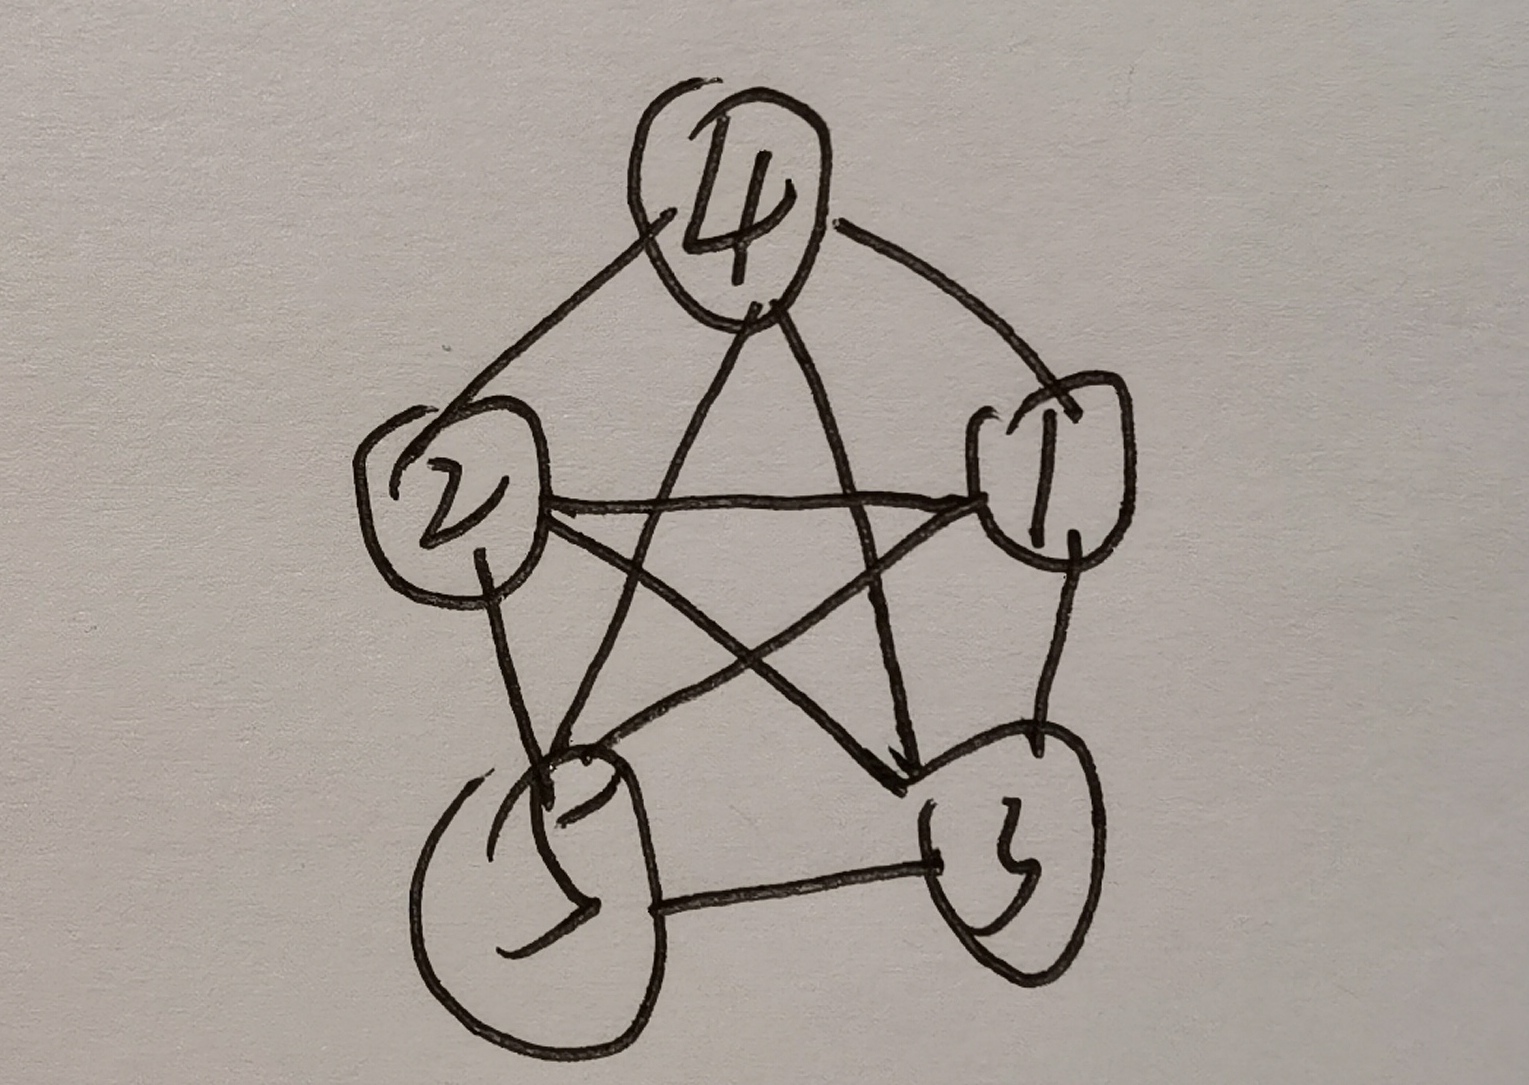 4
2 1
5 3